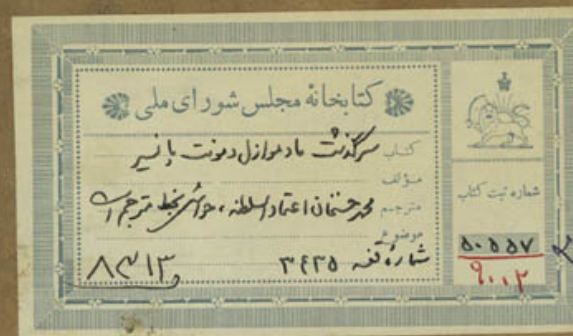 کتابخانهٔ مجلس شورای ملی
کتاب سرگذشت مادموازل دمونت پانسیر
مؤلف
مترجم محمدحسنخان اعتمادالسلطنه، حواشی بخط مترجم است
موضوع
شمارهٔ قفسه ۳۴۳۵
۸۳۱۳
شماره ثبت کتاب
۵۰۵۵۷
۹۰۱۲